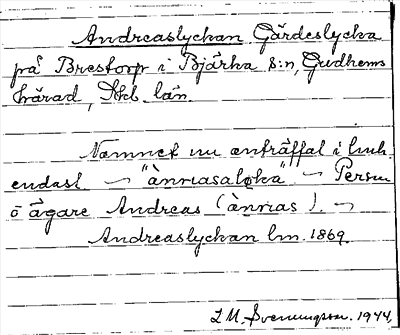 Andreaslyckan Gärdeslycka
på Brestorp i Bjärka s:n, Gudhems
härad, Skbl. län.
Namnet nu anträffat i bruk
endast ~ "ànnasaløka" ~ Persn
o ägare Andreas (ànnas). ~
Andreaslyckan lm. 1869.
L M. Svenungsson. 1944.